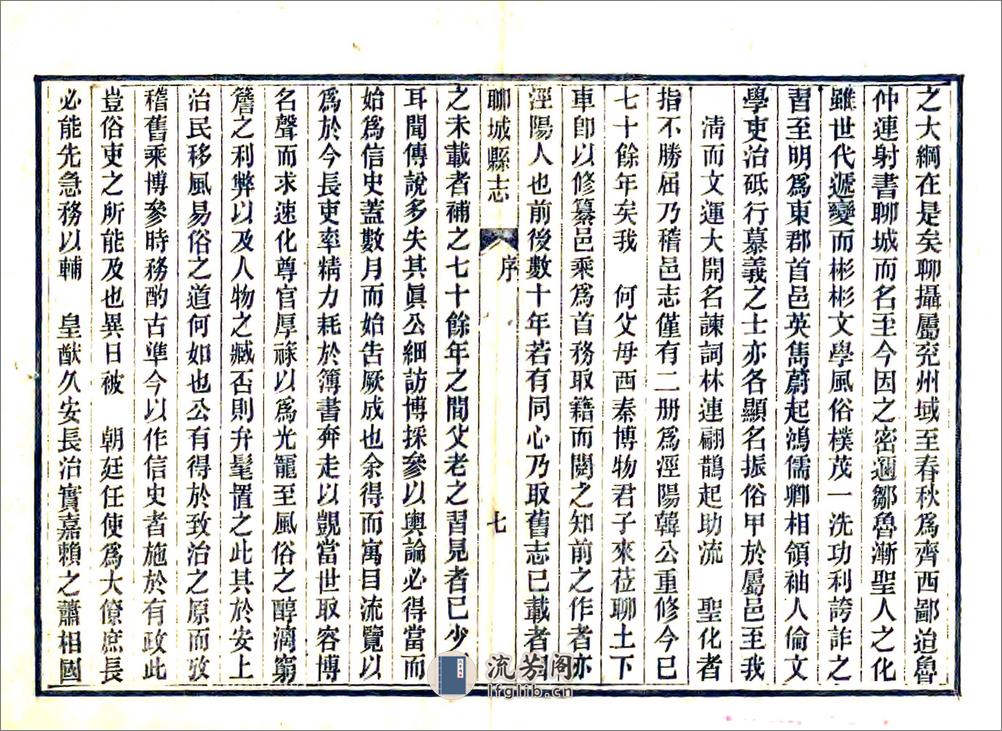 之大綱在是矣聊攝屬兖州域至春秋爲齊西鄙迨魯
仲連射書聊城而名至今因之密邇鄒魯漸聖人之化
雖世代遞變而彬彬文學風俗樸茂一洗功利誇詐之
習至明爲東郡首邑英雋蔚起鴻儒卿相領袖人倫文
學吏治砥行慕義之士亦各顯名振俗甲於屬邑至我
淸而文運大開名諫詞林連翩鵲起助流 聖化者
指不勝屈乃稽邑志僅有二册爲涇陽韓公重修今已
七十餘年矣我 何父母西秦博物君子來莅聊土下
車卽以修纂邑乘爲首務取籍而閱之知前之作者亦
涇陽人也前後數十年若有同心乃取舊志已載者
聊城縣志 序 七
之未載者補之七十餘年之間父老之習見者已少
耳聞傳說多失其眞公細訪博採參以輿論必得當而
始爲信史蓋數月而始告厥成也余得而寓目流覽以
爲於今長吏率精力耗於簿書奔走以覬當世取容博
名聲而求速化尊官厚祿以爲光寵至風俗之醇漓窮
簷之利弊以及人物之臧否則弁髦置之此其於安上
治民移風易俗之道何如也公有得於致治之原而攷
稽舊乘博參時務酌古準今以作信史者施於有政此
豈俗吏之所能及也異日被 朝廷任使爲大僚庶長
必能先急務以輔 皇猷久安長治實嘉賴之蕭相國
流芳阁
lfglib.cn